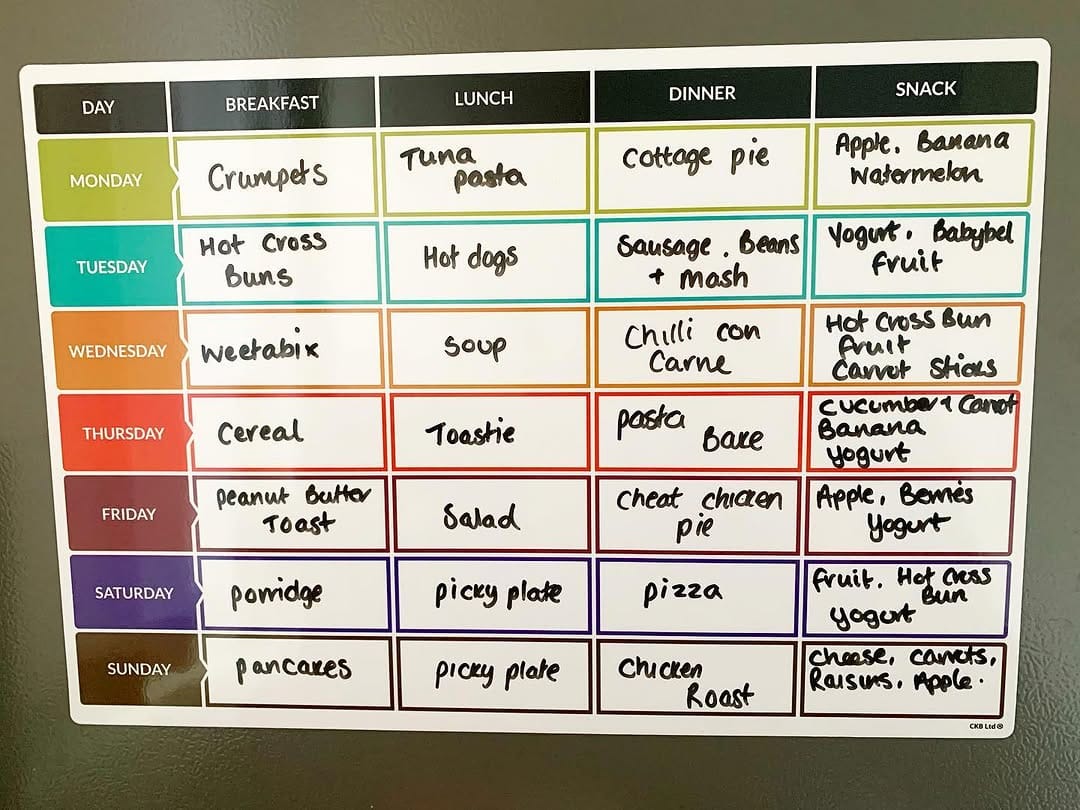 DAY BREAKFAST LUNCH DINNER SNACK
MONDAY
Crumpets
Tuna
pasta
Cottage pie
Apple, Banana
Watermelon
TUESDAY
Hot Cross
Buns
Hot dogs
Sausage, Beans
+ Mash
Yogurt, Babybel
fruit
WEDNESDAY
Weetabix
Soup
Chilli con
Carne
Hot Cross Bun
fruit
Carrot Sticks
THURSDAY
Cereal
Toastie
pasta
Bake
Cucumber + Carrot
Banana
Yogurt
FRIDAY
Peanut Butter
Toast
Salad
Cheat chicken
pie
Apple, Berries
Yogurt
SATURDAY
porridge
picky plate
pizza
fruit, Hot Cross
Bun
Yogurt
SUNDAY
pancakes
picky plate
Chicken
Roast
Cheese, carrots,
Raisins, Apple.
CKB Ltd ®